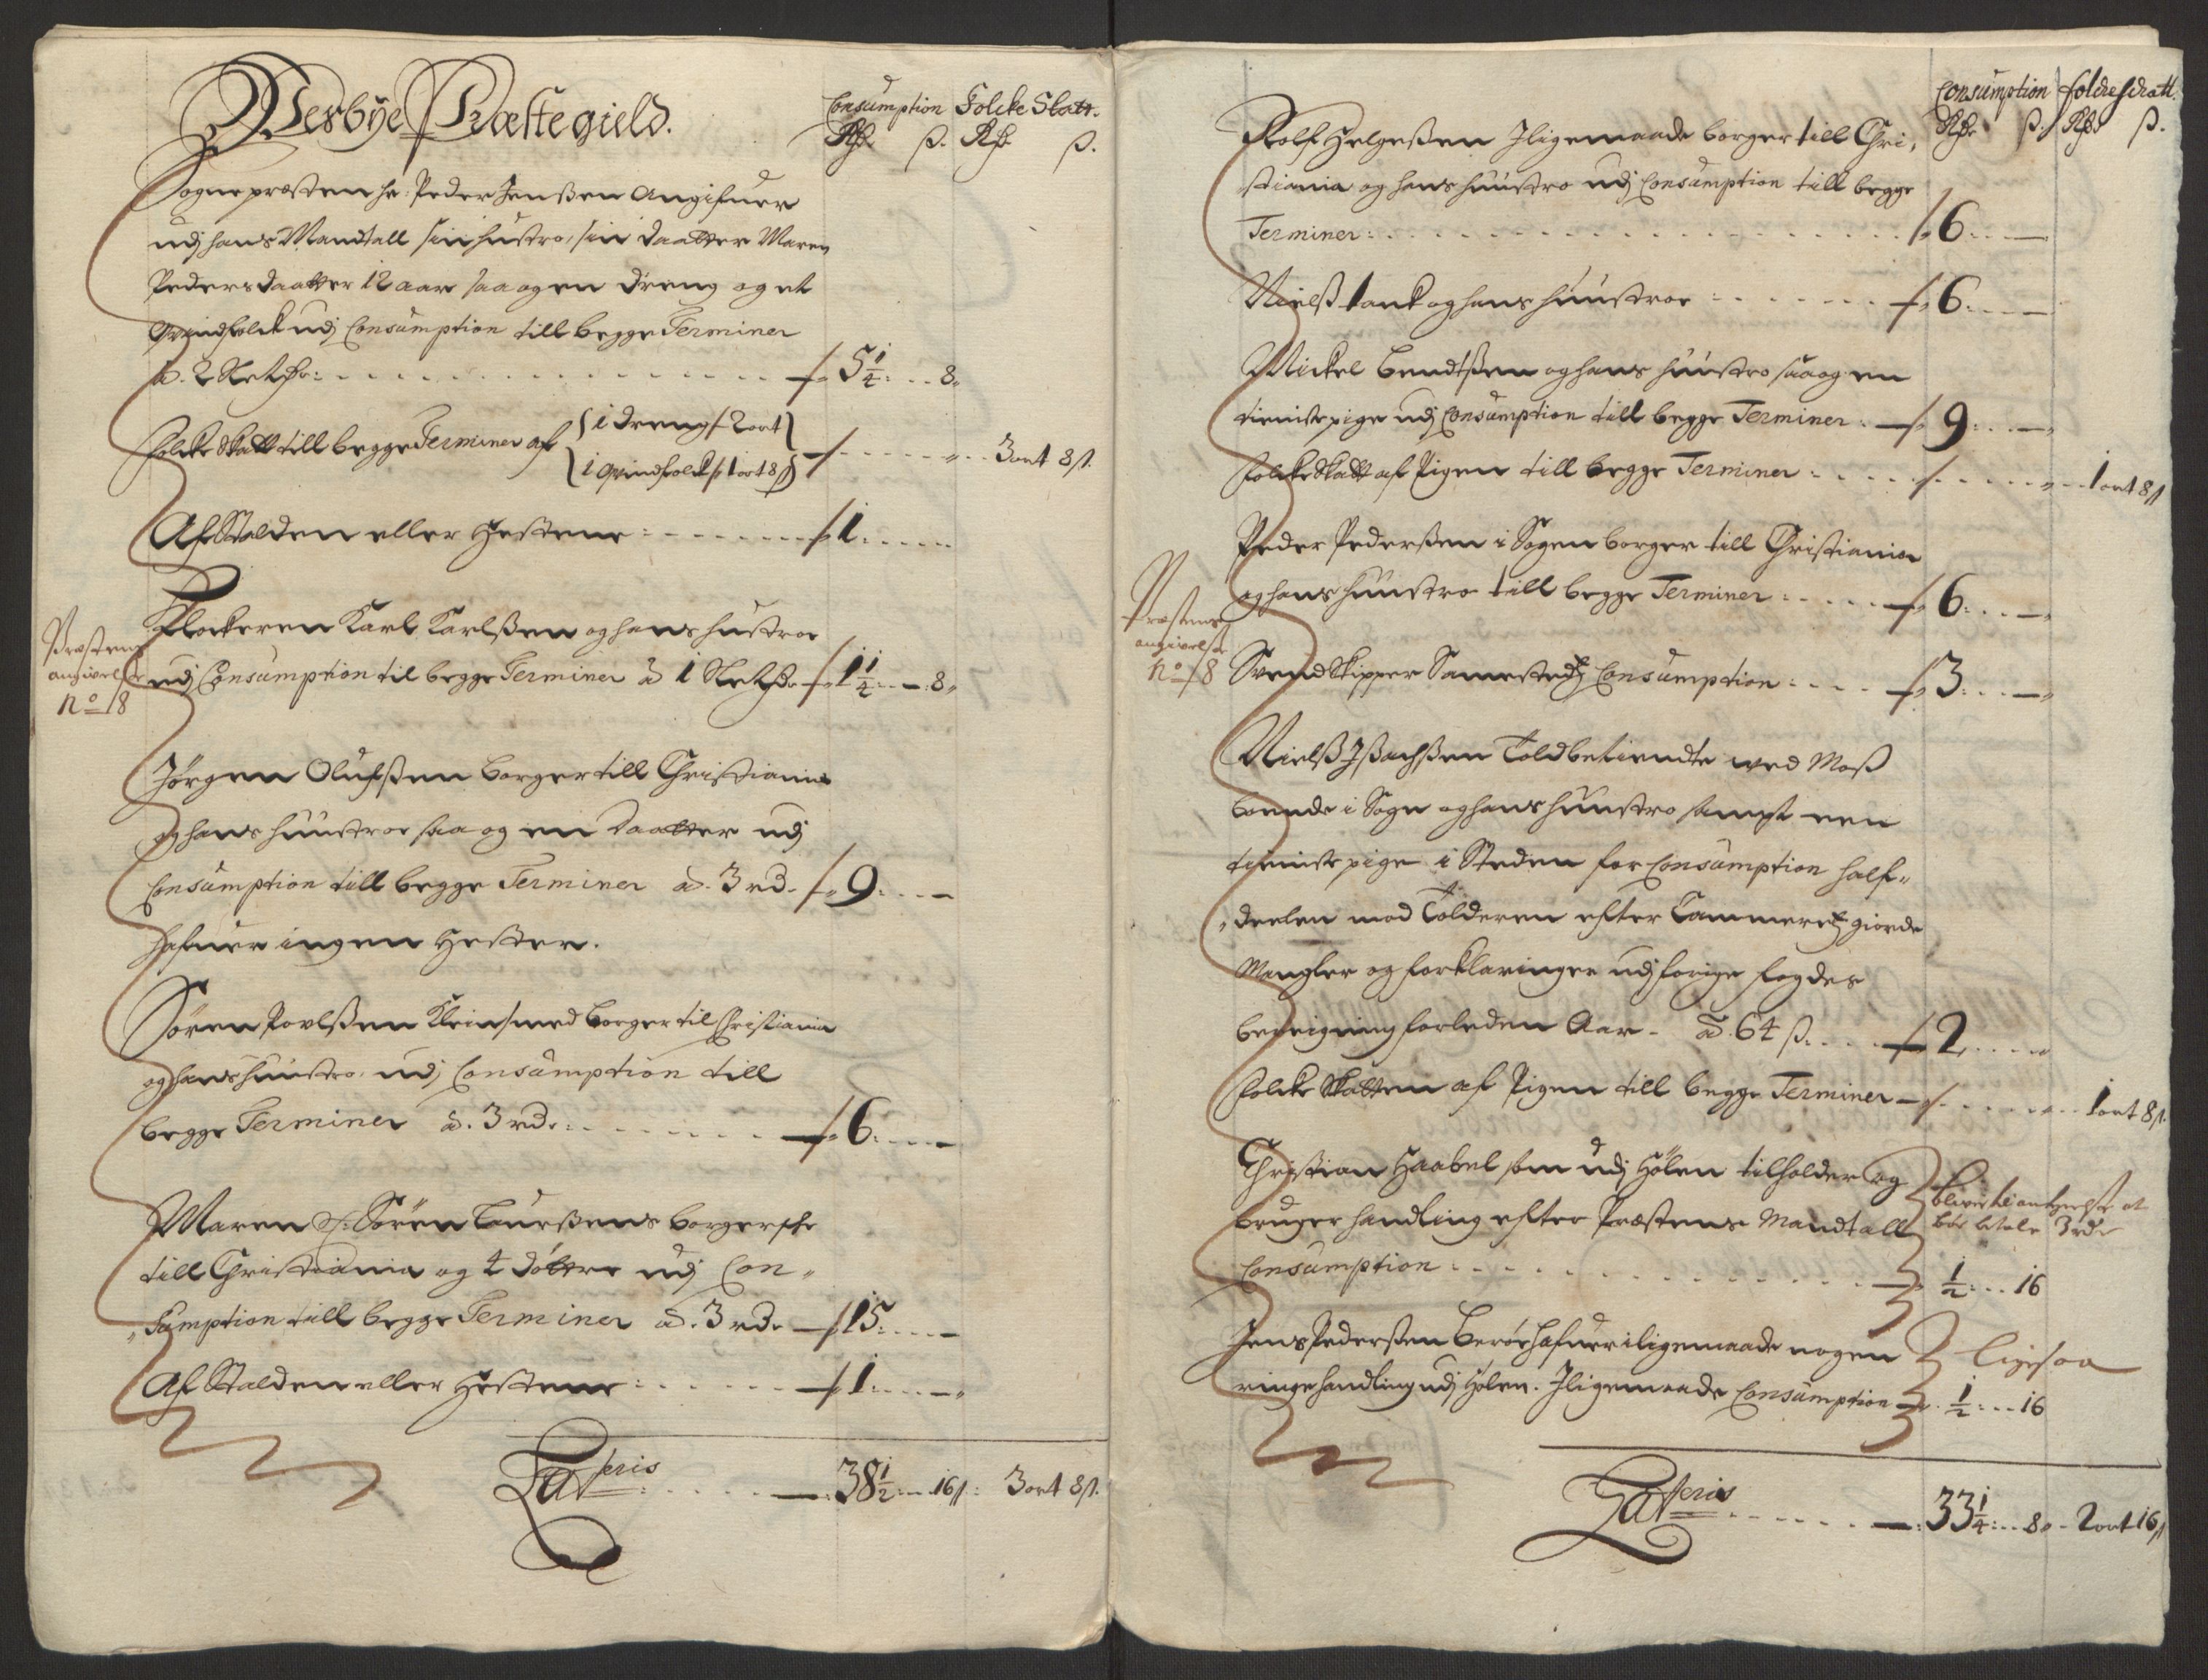 Wesbÿe Præstegield.
Consumption Folcke Skatt.
Rdr ß. Rdr ß.
Sogne præsten hr: Peder Jenßen Angifuer
udj hans Mandtall sin hustro, sin daatter Maren
Pedersdaatter 12 aar saa og en dreng og et
qvindfolck udj Consumption till begge Terminer
à. 2 Sletdr: 5 1/4 8
Folcke Skatt till begge Terminer af
1 dreng 2 ort
1 qvindfolck 1 ort 8 ß
3 ort 8 ß.
Af Stalden eller Hestene 1
Præstens
angivelse
No 18
Klockeren Karl Karlßen og hans hustroe
udj Consumption til begge Terminer à 1 Sletdr 1 1/4 8
Jörgen Olufßen borger till Christiania
og hans huustroe saa og en daatter udj
Consumption till begge Terminer à. 3 rd. 9
hafuer ingen Hester.
Sören Povlßen Kleinsmed borger til Christiania
og hans huustro udj Consumption till
begge Terminer à. 3 rd. 6
Maren Sl: Sören Laurßens borgerske
till Christiania og 4 døttre udj Con"
"sumption till begge Terminer à. 3 rd. 15
Af Stalden eller Hestene 1
Lateris 38 1/2 16 ß: 3 ort 8 ß.
Consumption folckeskatt.
Rdr ß. Rdr ß.
Rolf Helgeßen Iligemaade borger till Chri,
stiania og hans huustro udj Consumption till begge
Terminer 6
Nielß Lank og hans huustroe 6
Mickel Bendtßen og hans huustro saa og en
tieniste pige udj Consumption till begge Terminer 9
Folcke Skatt af Pigen till begge Terminer 1 ort 8 ß
Peder Pederßen i Sogen borger till Christiania
og hans huustro till begge Terminer 6
Præstens
angivelse
No 18
Svend Skipper Samesteds Consumption 3
Nielß Ißachßen Toldbetiendte wed Moß
boende i Sogn og hans huustro sampt een
tieniste pige i Steden for Consumption half"
"deelen mod Tolderen efter Cammerets giorde
Mangler og forklaringer udj forige fogdes
bereigning forleden Aar à 64 ß. 2
Folcke Skatten af Pigen till begge Terminer 1 ort 8 ß.
Christian Haabel som udj Hölen tilholder og
bruger handling efter Præstens Mandtall
Consumption 1/2 16
bör betale 3 rd
Jens Pederßen hafuer iligemaade nogen
ringe handling udj Hölen. Iligemaade Consumption 1/2 16
ligesaa
Lateris 33 1/4 8 2 ort 16 ß